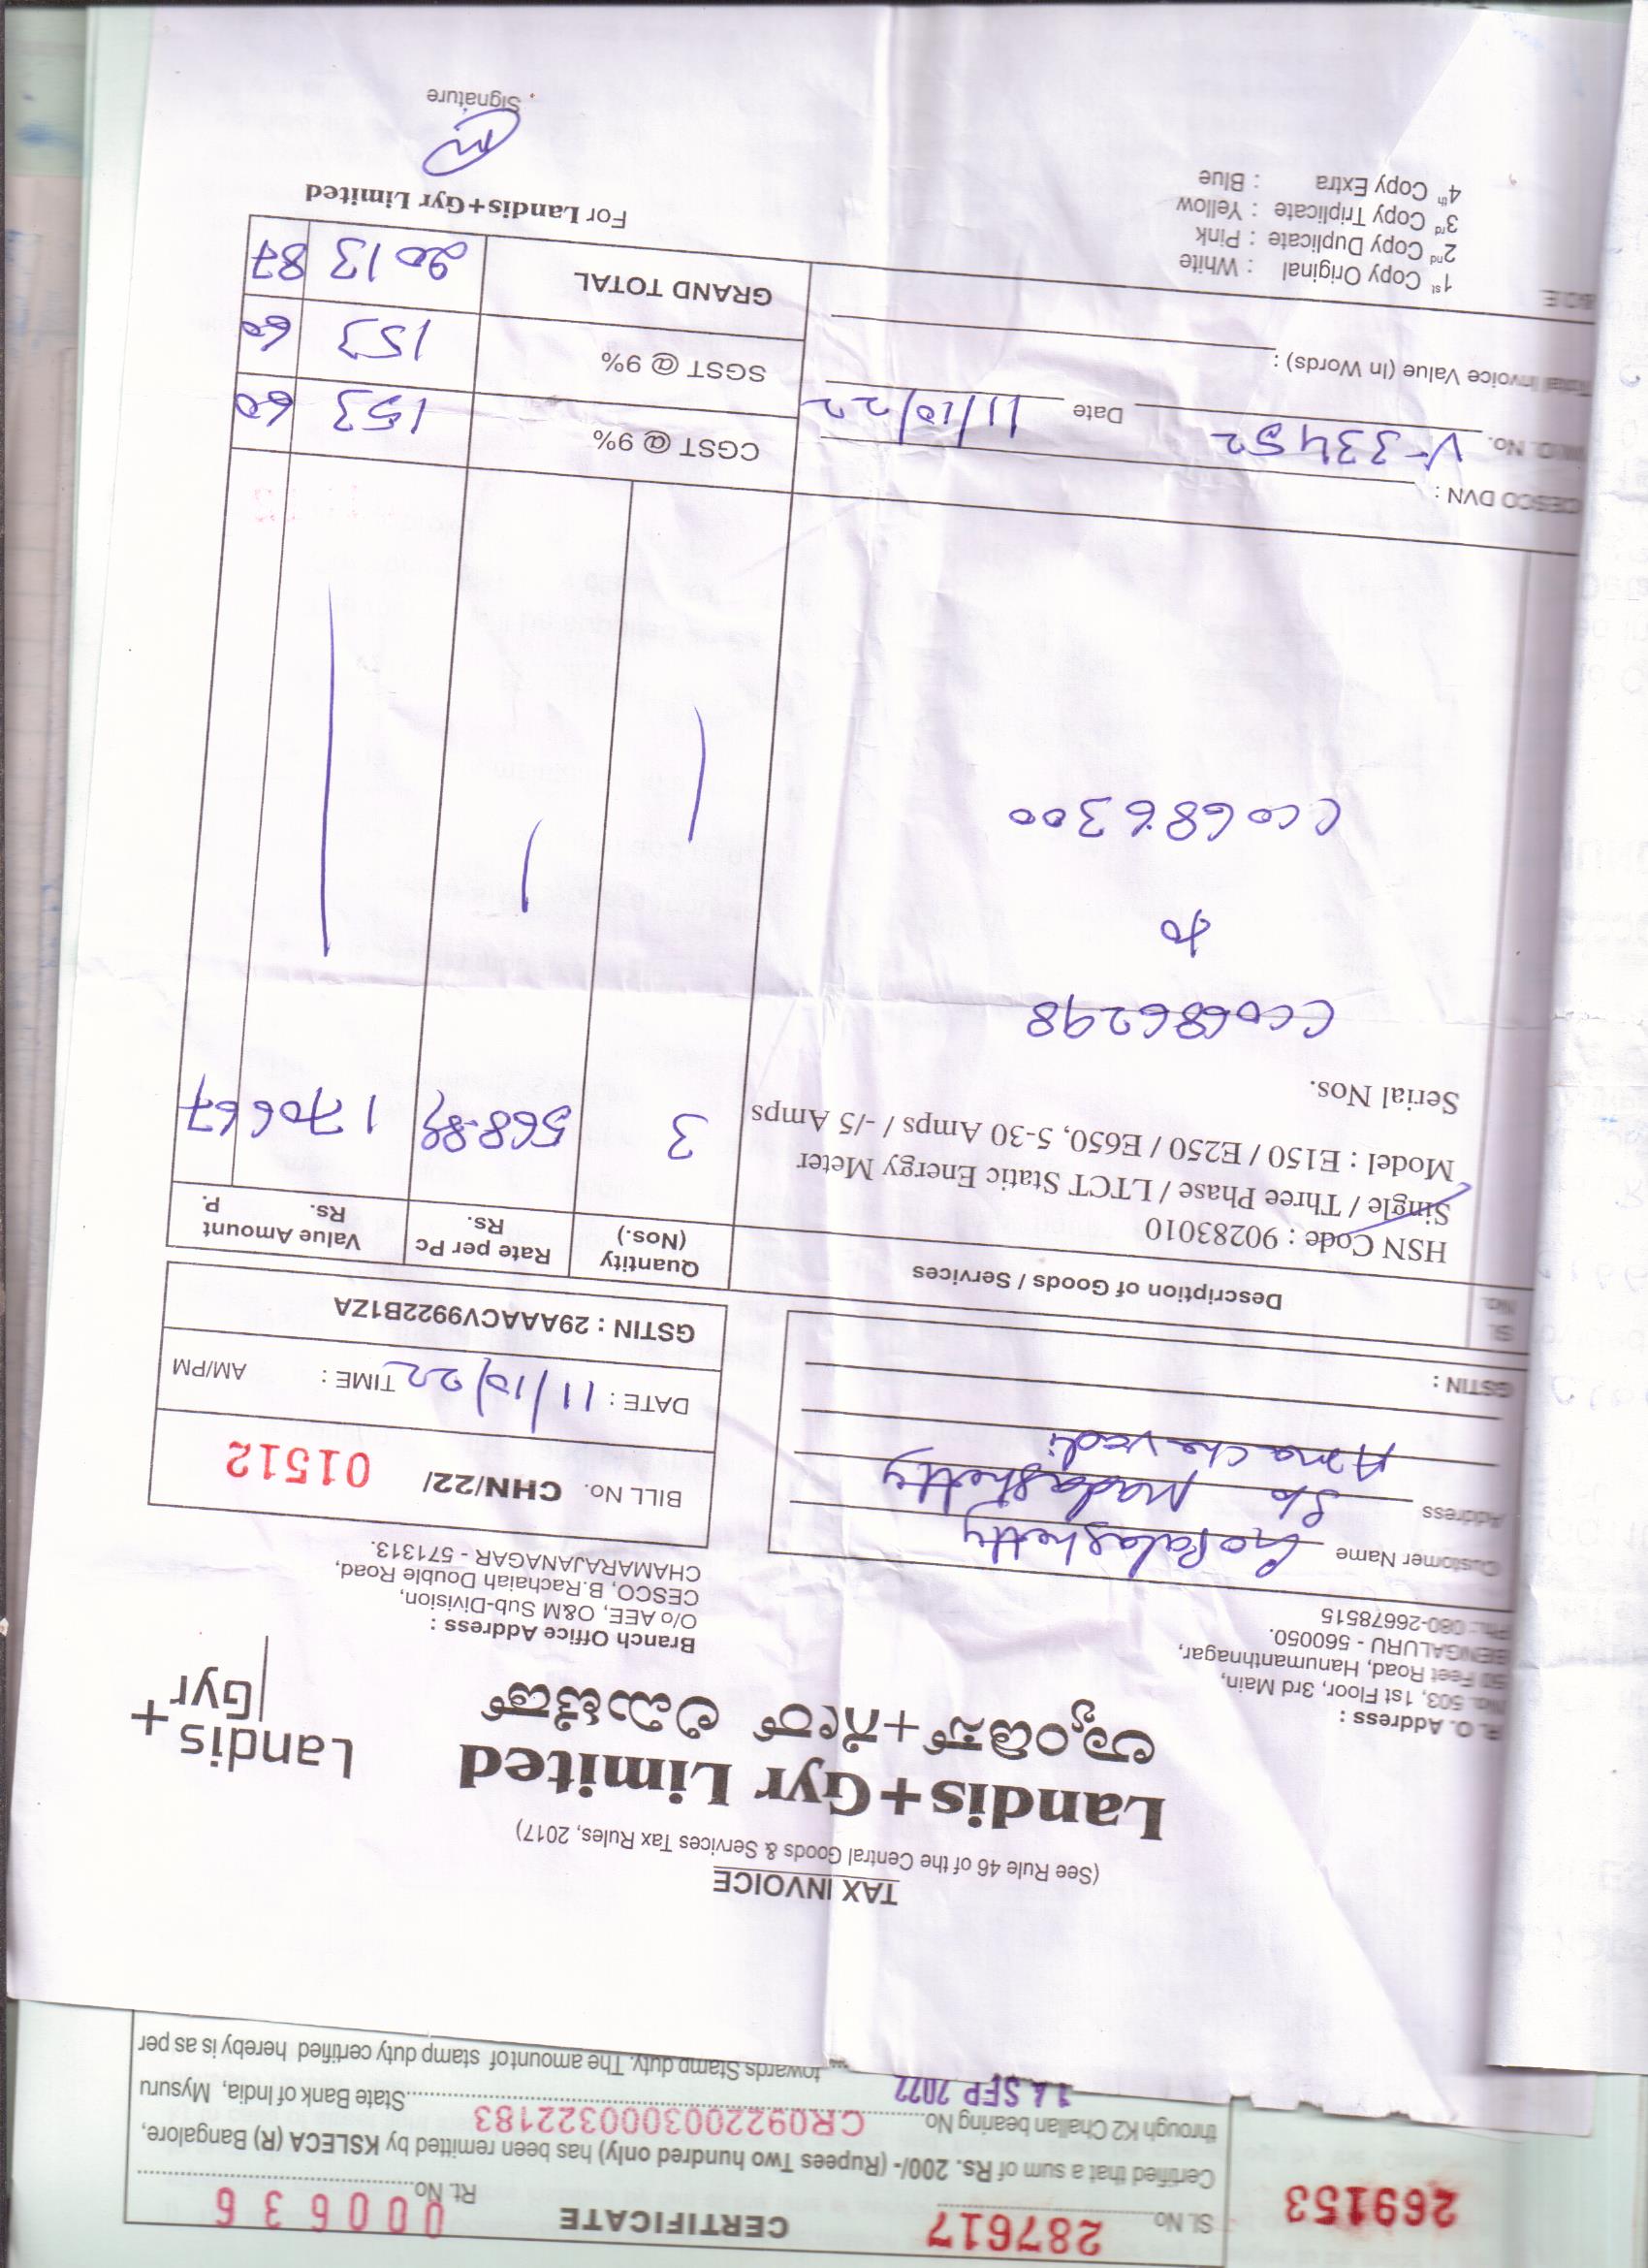 TAX INVOICE
(See Rule 46 of the Central Goods & Services Tax Rules, 2017)
Landis+Gyr Limited
ಲ್ಯಾಂಡಿಸ್+ಗೀರ್ ಲಿಮಿಟೆಡ್
Landis+
Gyr
R. O. Address :
No. 503, 1st Floor, 3rd Main,
50 Feet Road, Hanumanthnagar,
BENGALURU - 560050.
Ph.: 080-26678515
Branch Office Address :
O/o AEE, O&M Sub-Division,
CESCO, B.Rachaiah Double Road,
CHAMARAJANAGAR - 571313.
Customer Name Gopalashetty
Address S/o Madashetty
Amachavadi
GSTIN :
BILL No. CHN/22/ 01512
DATE : 11/10/22 TIME : AM/PM
GSTIN : 29AAACV9922B1ZA
Sl. No. Description of Goods / Services Quantity (Nos.) Rate per Pc Rs. Value Amount Rs. P.
HSN Code : 90283010
Single / Three Phase / LTCT Static Energy Meter
Model : E150 / E250 / E650, 5-30 Amps / -/5 Amps 3 568.89 1706 67
Serial Nos.
CC0686298
to
CC0686300
CESCO DVN :
W.O. No. V-33452 Date 11/10/22
CGST @ 9% 153 60
Total Invoice Value (In Words) :
SGST @ 9% 153 60
GRAND TOTAL 2013 87
E&OE
1st Copy Original : White
2nd Copy Duplicate : Pink
3rd Copy Triplicate : Yellow
4th Copy Extra : Blue
For Landis+Gyr Limited
Signature
269153
Sl. No. 287617 CERTIFICATE Rt. No. 000636
Certified that a sum of Rs. 200/- (Rupees Two hundred only) has been remitted by KSLECA (R) Bangalore,
through K2 Challan bearing No. CR0922003000322183 State Bank of India, Mysuru
14 SEP 2022 towards Stamp duty. The amount of stamp duty certified hereby is as per